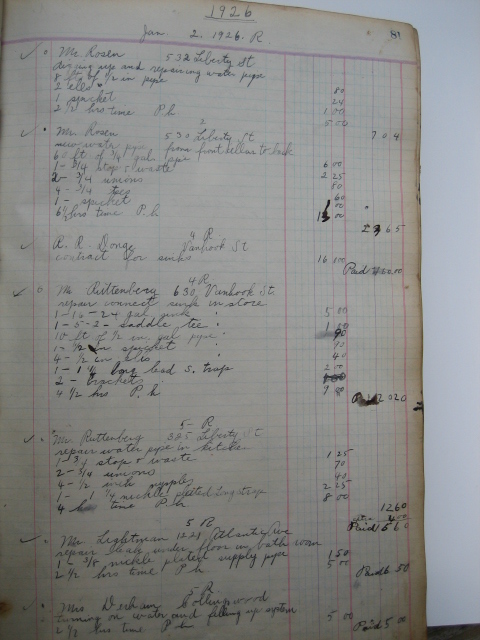 1926
Jan. 2. 1926. R. 81
Mr. Rosen 532 Liberty St
digging up and repairing water pipe
8 ft of 1/2 in pipe 80
2 ells 24
1 spacket 1 00
2 1/2 hrs time P.h 5 00
7 04
2
Mr. Rosen 530 Liberty St.
new water pipe from front cellar to back
60 ft of 3/4 gal pipe 6 00
1 - 3/4 stop & waste 2 25
2 - 3/4 unions 80
4 - 3/4 tees 60
1 - spacket
6 1/2 hrs time P.h. 13 00
65
4 R
R. R. Donge Vanhook St
contract for sinks 16 00
Paid
4 R.
Mr. Rittenberg 630 Vanhook St.
repair connect sink in store
1 - 16 - 24 gal sink 5 00
1 - 5 - 2 - saddle tee
10 ft of 1/2 in gal pipe 90
1 - 1/2 in spacket
4 - 1/2 in ells 40
1 - 1 1/4 long lead S. trap
2 - brackets
4 1/2 hrs P.h
2020
5 - R
Mr. Rittenberg 385 Liberty St
repair water pipe in kitchen
1 - 3/4 stop & waste 1 25
2 - 3/4 unions 70
4 - 1/2 inch nipples 40
1 - 1 1/4 nickle plated Lng trap 2 25
4 hrs time P.h 8 00
1260
Paid 5 60
5 R
Mr. Lightman 1221 Atlantic Ave
repair leak under floor in bath room
1 - 3/8 nickle plated supply pipe 1 50
2 1/2 hrs time P.h 5 00
Paid 6 50
5 - R
Mrs Collingswood
turning on water and filling up system
2 1/2 hrs time P.h 5 00
Paid 5 00